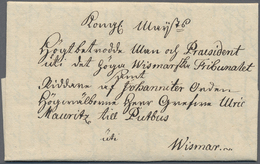 Kongl May:ts
Högtbetrodde Man och Præsident
uti det höga Wismarska Tribunalet
samt
Riddare af Johanniter Orden
Högvälborne Herr Grefve Ulric
Mauritz till Putbus
uti
Wismar